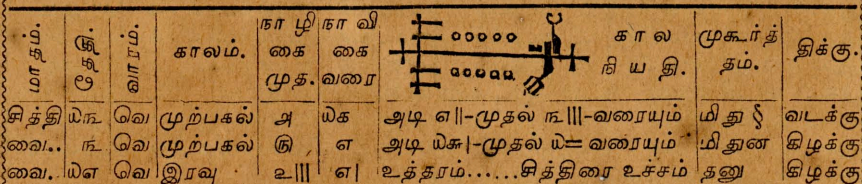 மாதம். தேதி. வாரம். காலம். நாழிகை முத. நாவிகை வரை காலநியதி. முகூர்த்தம். திக்கு.
சித்தி ௰௩ வெ முற்பகல் ௮ ௰௧ அடி ௭||-முதல் ௩|||-வரையும் மிது § வடக்கு
வை.. ௩ வெ முற்பகல் ௫ ௭ அடி ௰௬|-முதல் ௰= வரையும் மிதுன கிழக்கு
வை. ௰௭ வெ இரவு ௨||| ௭| உத்தரம்......சித்திரை உச்சம் தனு கிழக்கு